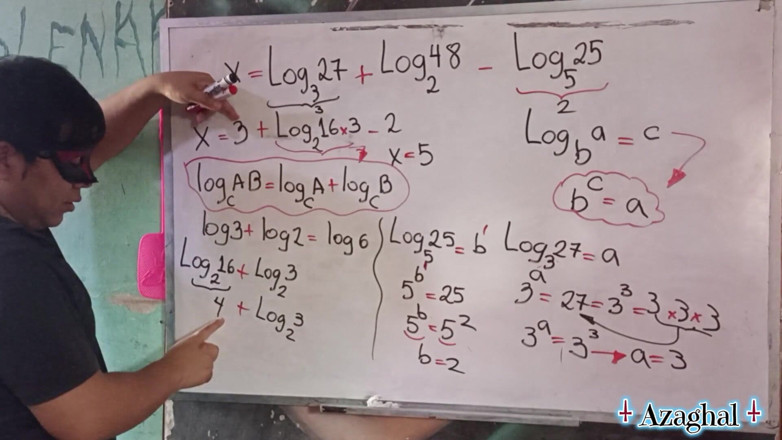 x = Log₃27 + Log₂48 − Log₅25
3
2
x = 3 + Log₂16×3 − 2
x = 5
Log_b a = c
b^c = a
log_c AB = log_c A + log_c B
log3 + log2 = log6
Log₂16 + Log₂3
4 + Log₂3
Log₅25 = b'
5^b' = 25
5^b = 5²
b = 2
Log₃27 = a
3^a = 27 = 3³ = 3×3×3
3^a = 3³ → a = 3
Azaghal